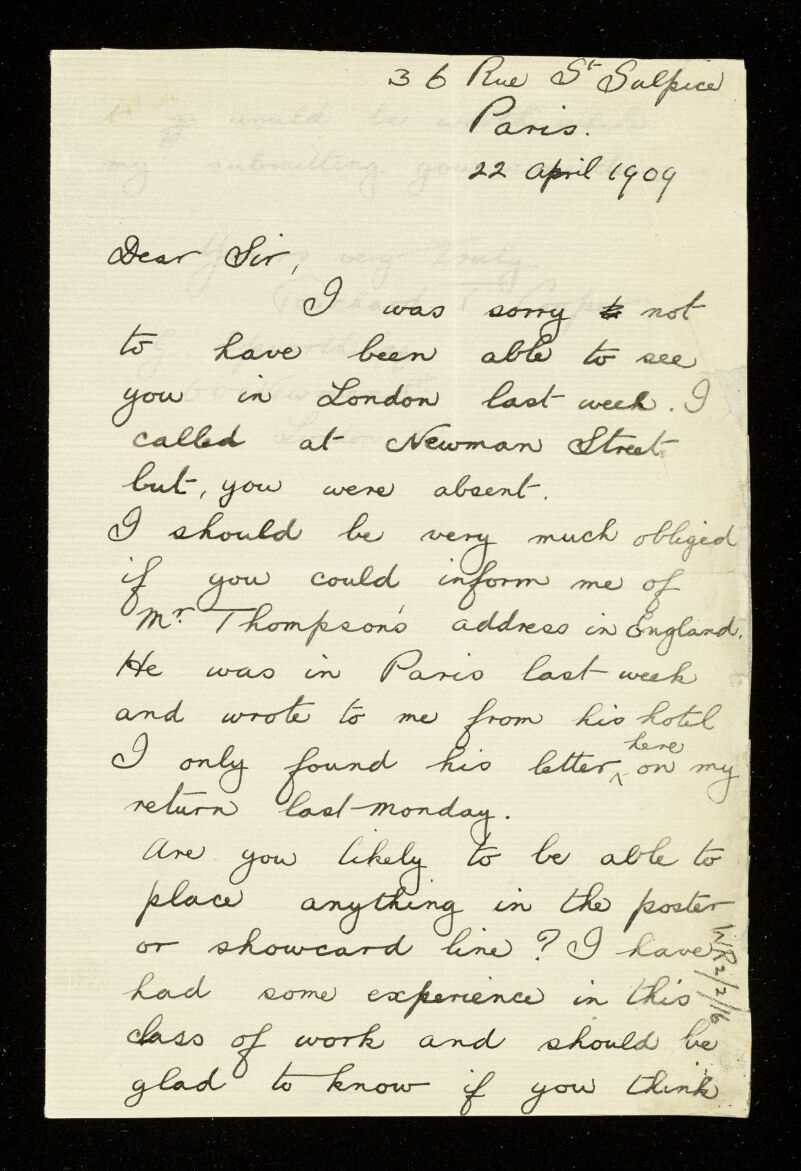 36 Rue St Sulpice
Paris.
22 April 1909
Dear Sir,
I was sorry not
to have been able to see
you in London last week. I
called at Newman Street
but, you were absent.
I should be very much obliged
if you could inform me of
Mr. Thompson's address in England.
He was in Paris last week
and wrote to me from his hotel
I only found his letter here on my
return last Monday.
Are you likely to be able to
place anything in the poster
or showcard line? I have
had some experience in this
class of work and should be
glad to know if you think
WR2/2/16